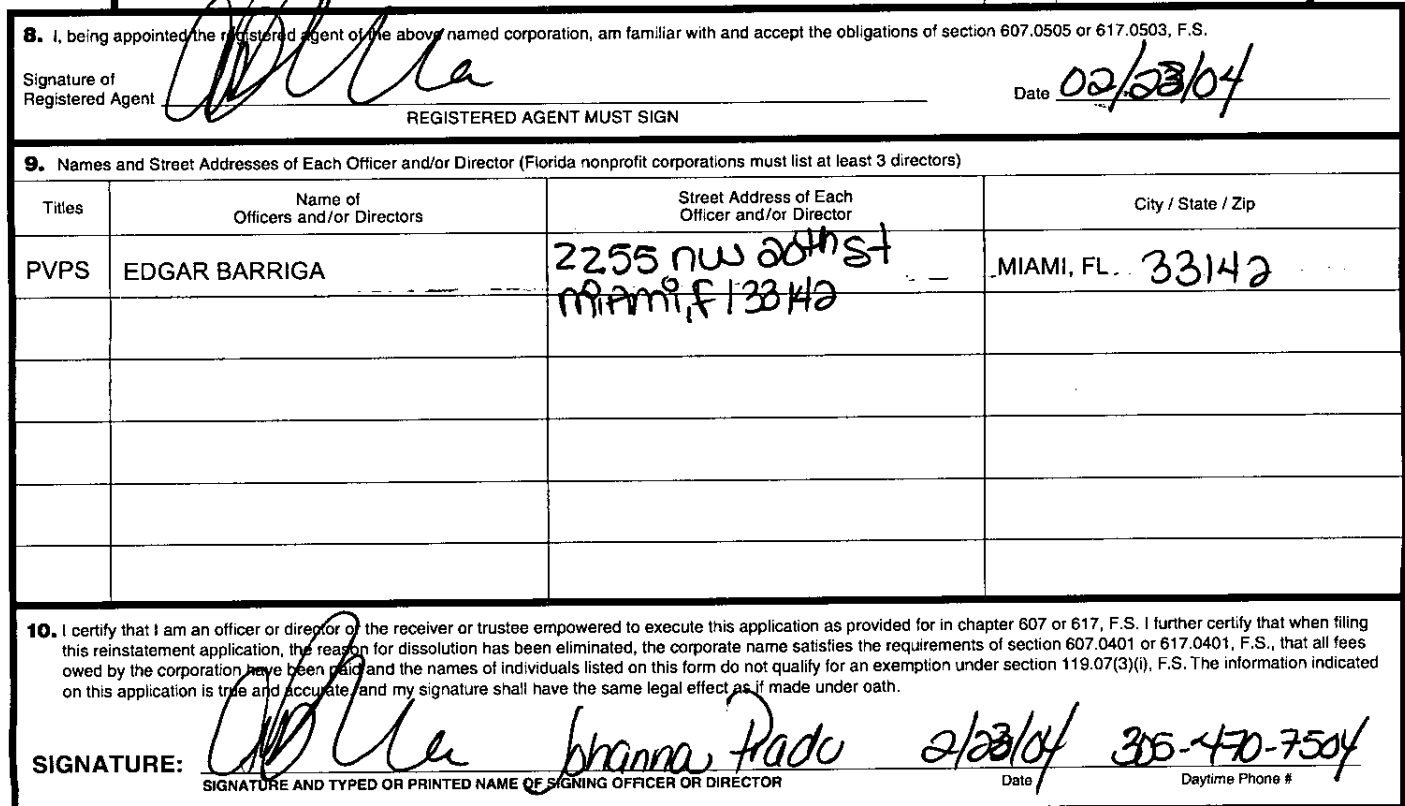 8. I, being appointed the registered agent of the above named corporation, am familiar with and accept the obligations of section 607.0505 or 617.0503, F.S.
Signature of
Registered Agent
Date 02/23/04
REGISTERED AGENT MUST SIGN
9. Names and Street Addresses of Each Officer and/or Director (Florida nonprofit corporations must list at least 3 directors)
Titles
Name of
Officers and/or Directors
Street Address of Each
Officer and/or Director
City / State / Zip
PVPS
EDGAR BARRIGA
2255 NW 20th St
Miami, Fl 33142
MIAMI, FL. 33142
10. I certify that I am an officer or director or the receiver or trustee empowered to execute this application as provided for in chapter 607 or 617, F.S. I further certify that when filing
this reinstatement application, the reason for dissolution has been eliminated, the corporate name satisfies the requirements of section 607.0401 or 617.0401, F.S., that all fees
owed by the corporation have been paid and the names of individuals listed on this form do not qualify for an exemption under section 119.07(3)(i), F.S. The information indicated
on this application is true and accurate, and my signature shall have the same legal effect as if made under oath.
SIGNATURE: Johanna Prado 2/23/04 305-470-7504
SIGNATURE AND TYPED OR PRINTED NAME OF SIGNING OFFICER OR DIRECTOR Date Daytime Phone #